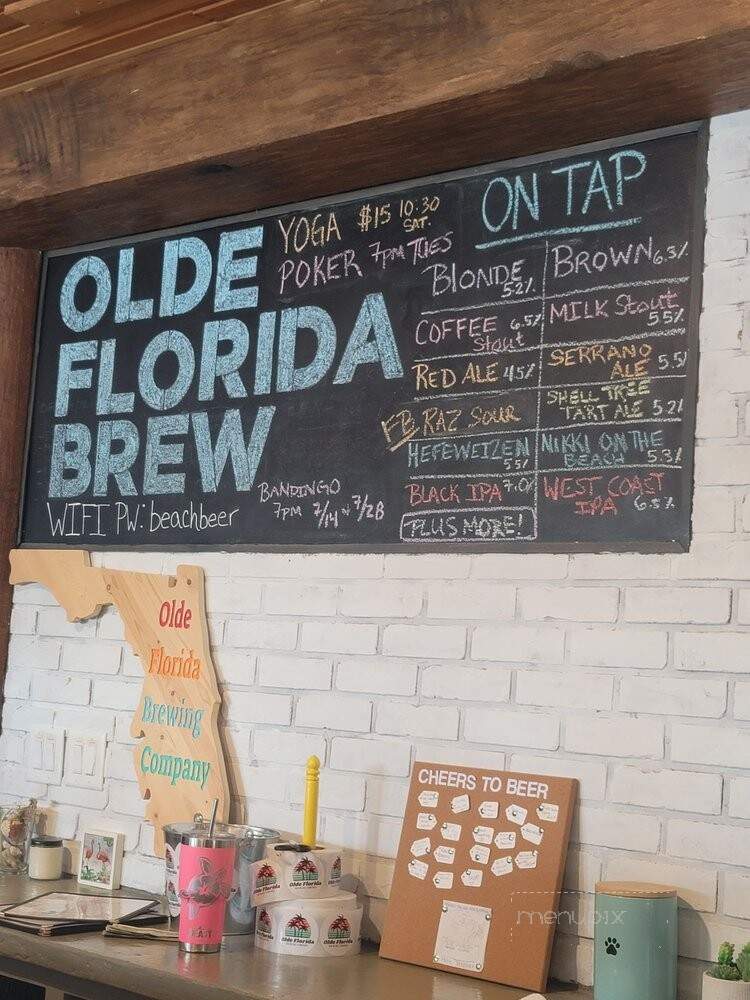 OLDE
FLORIDA
BREW
WIFI PW: beachbeer
YOGA $15 10:30
SAT.
POKER 7pm TUES
BANDINGO
7PM 7/14 & 7/28
ON TAP
BLONDE
5.2%
COFFEE 6.5%
Stout
RED ALE 4.5%
FB RAZ SOUR
HEFEWEIZEN
5.5%
BLACK IPA 7.0%
PLUS MORE!
BROWN 6.3%
MILK Stout
5.5%
SERRANO
ALE 5.5%
SHELL TREE
TART ALE 5.2%
NIKKI ON THE
BEACH 5.3%
WEST COAST
IPA 6.5%
Olde
Florida
Brewing
Company
CHEERS TO BEER
Olde Florida
Olde Florida
Olde Florida
Olde Florida
BEAST
menupix